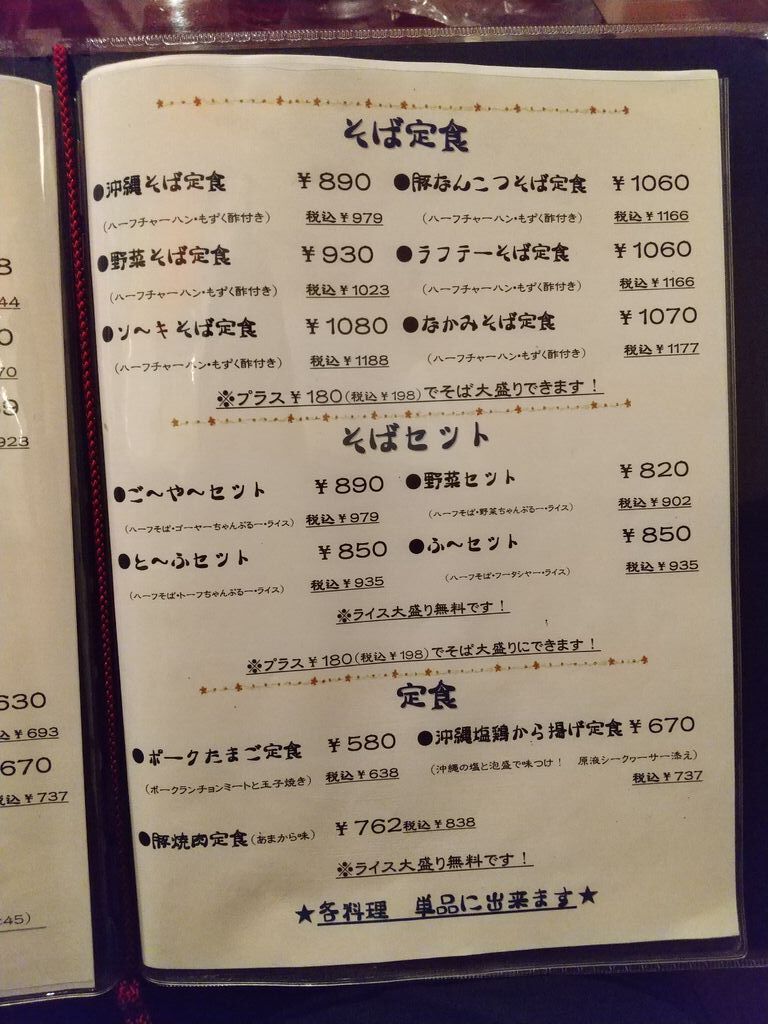 そば定食
●沖縄そば定食 ￥890
(ハーフチャーハン・もずく酢付き) 税込￥979
●豚なんこつそば定食 ￥1060
(ハーフチャーハン・もずく酢付き) 税込￥1166
●野菜そば定食 ￥930
(ハーフチャーハン・もずく酢付き) 税込￥1023
●ラフテーそば定食 ￥1060
(ハーフチャーハン・もずく酢付き) 税込￥1166
●ソ〜キそば定食 ￥1080
(ハーフチャーハン・もずく酢付き) 税込￥1188
●なかみそば定食 ￥1070
(ハーフチャーハン・もずく酢付き) 税込￥1177
※プラス￥180(税込￥198)でそば大盛りできます！
そばセット
●ご〜や〜セット ￥890
(ハーフそば・ゴーヤーちゃんぷるー・ライス) 税込￥979
●野菜セット ￥820
(ハーフそば・野菜ちゃんぷるー・ライス) 税込￥902
●と〜ふセット ￥850
(ハーフそば・トーフちゃんぷるー・ライス) 税込￥935
●ふ〜セット ￥850
(ハーフそば・フータシヤー・ライス) 税込￥935
※ライス大盛り無料です！
※プラス￥180(税込￥198)でそば大盛りにできます！
定食
●ポークたまご定食 ￥580
(ポークランチョンミートと玉子焼き) 税込￥638
●沖縄塩鶏から揚げ定食 ￥670
(沖縄の塩と泡盛で味つけ！ 原液シークヮーサー添え)
税込￥737
●豚焼肉定食(あまから味) ￥762税込￥838
※ライス大盛り無料です！
★各料理 単品に出来ます★
8
44
0
70
9
923
630
込￥693
670
税込￥737
:45)